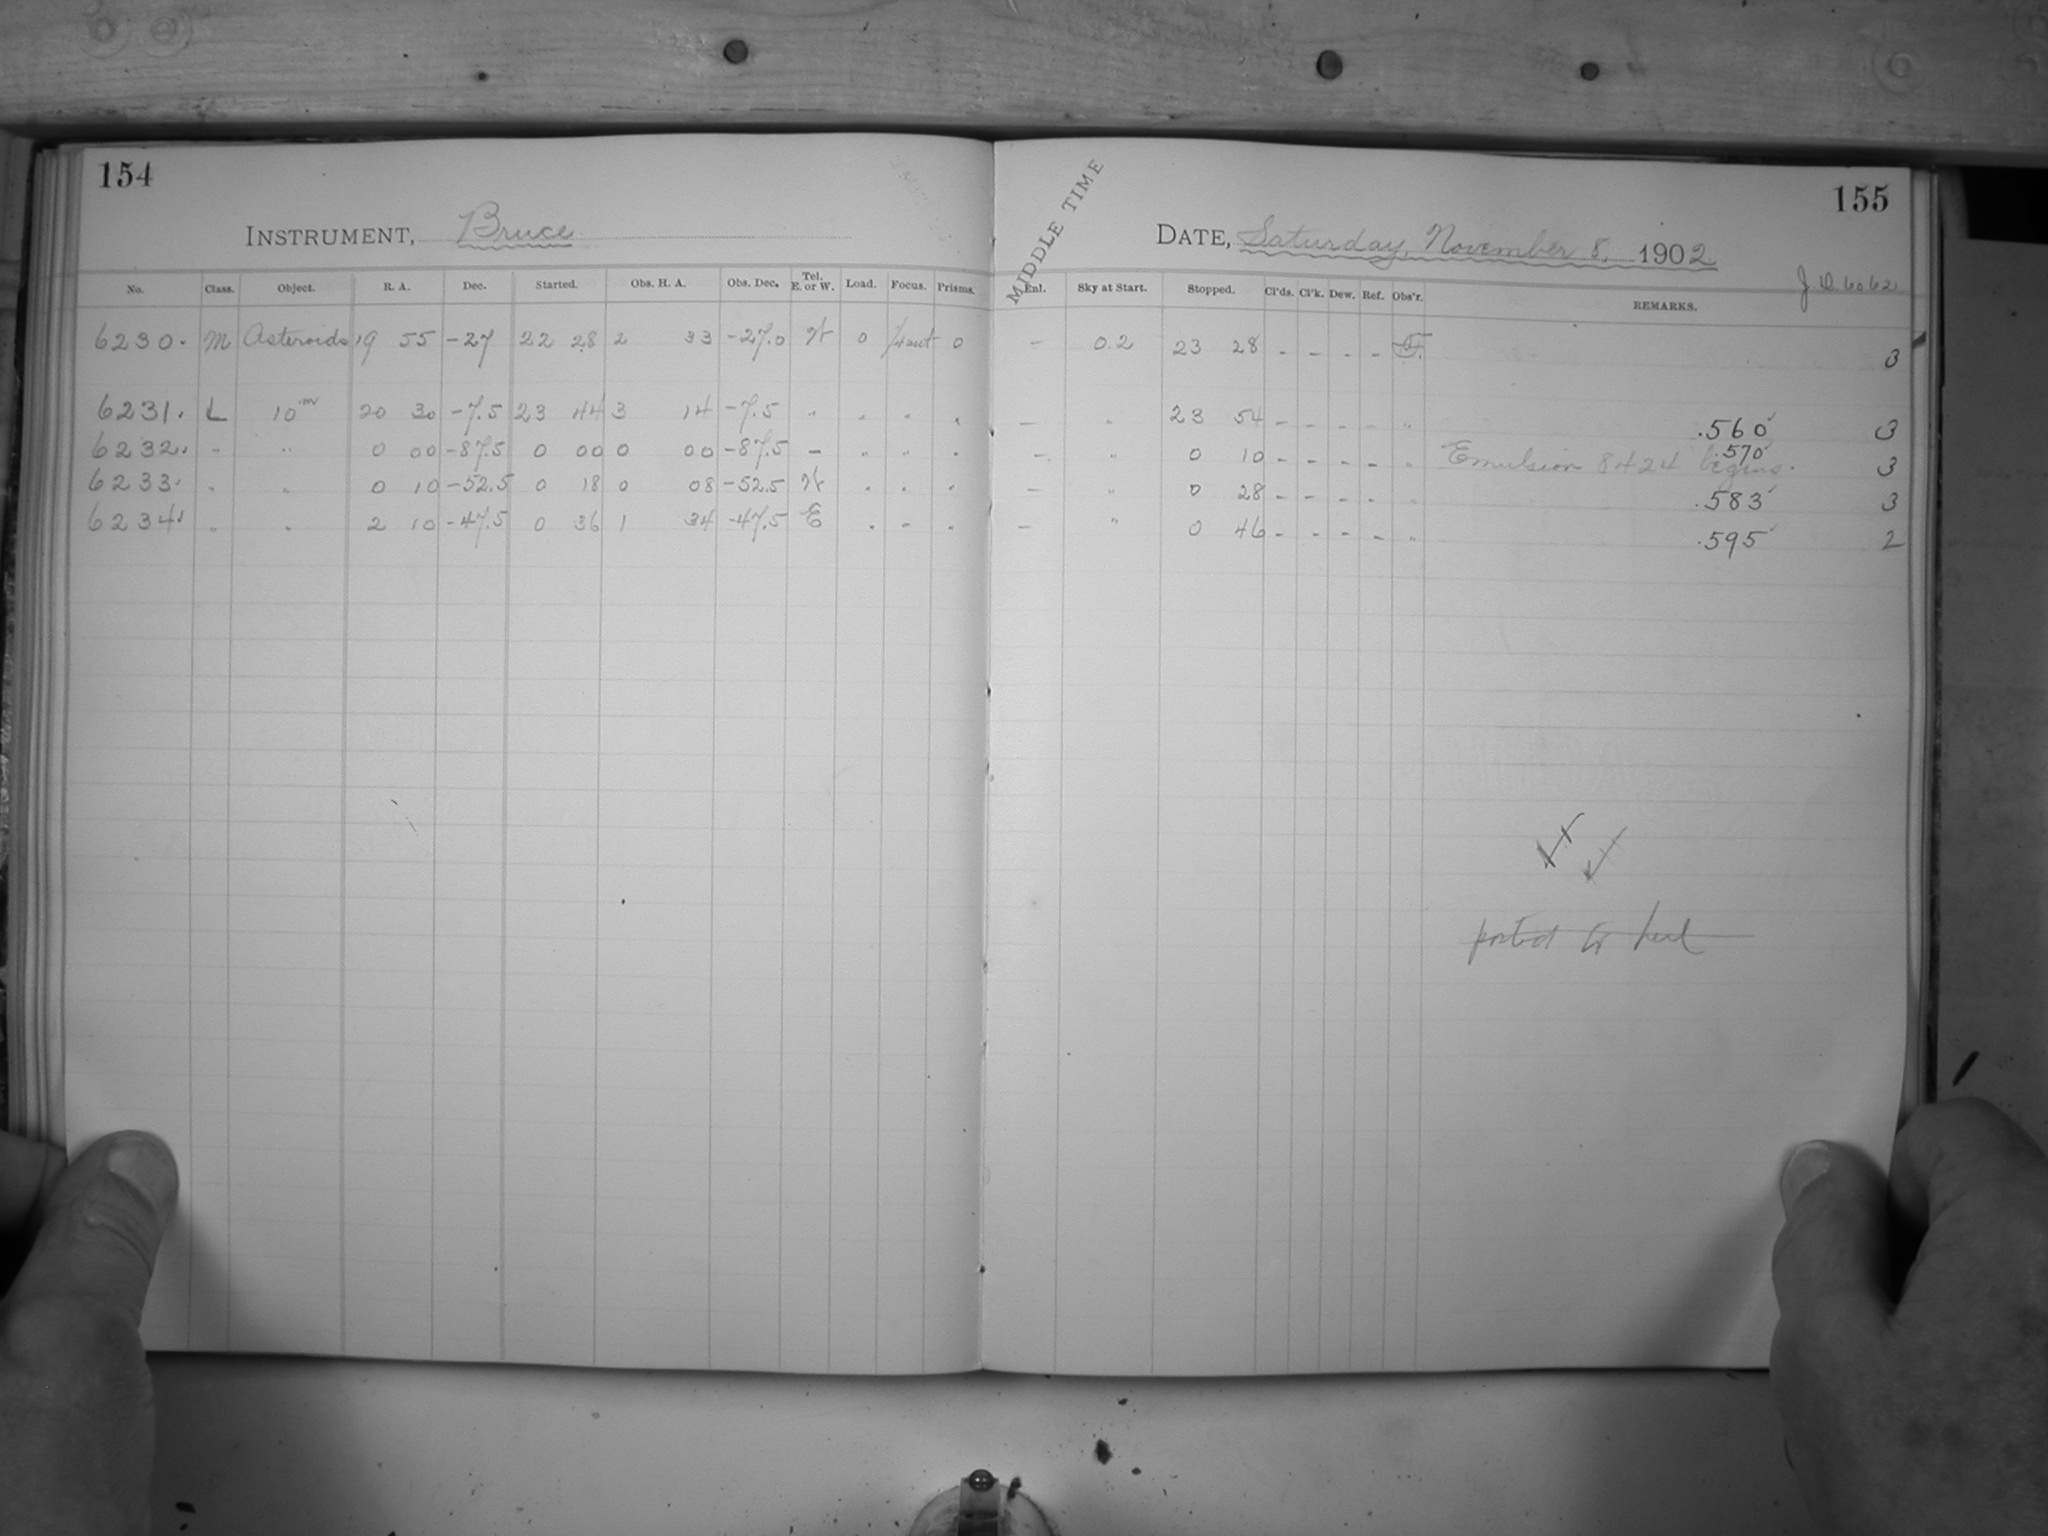 154
155
MIDDLE TIME
INSTRUMENT, Bruce
DATE, Saturday, November 8, 1902
J.D. 6062
No. Class. Object. R. A. Dec. Started. Obs. H. A. Obs. Dec. Tel. E. or W. Load. Focus. Prisms. Enl. Sky at Start. Stopped. Cl'ds. Cl'k. Dew. Ref. Obs'r. REMARKS.
6230. M Asteroids 19 55 -27 22 28 2 33 -27.0 W 0 0 - 0.2 23 28 - - - - 3
6231. L 10m 20 30 -7.5 23 44 3 14 -7.5 " " " " - " 23 54 - - - - " .560 3
6232. " " 0 00 -87.5 0 00 0 00 -87.5 - " " " - " 0 10 - - - - " Emulsion 8424 begins. .570 3
6233. " " 0 10 -52.5 0 18 0 08 -52.5 W " " " - " 0 28 - - - - " .583 3
6234. " " 2 10 -47.5 0 36 1 34 -47.5 E " " " - " 0 46 - - - - " .595 2
posted to here